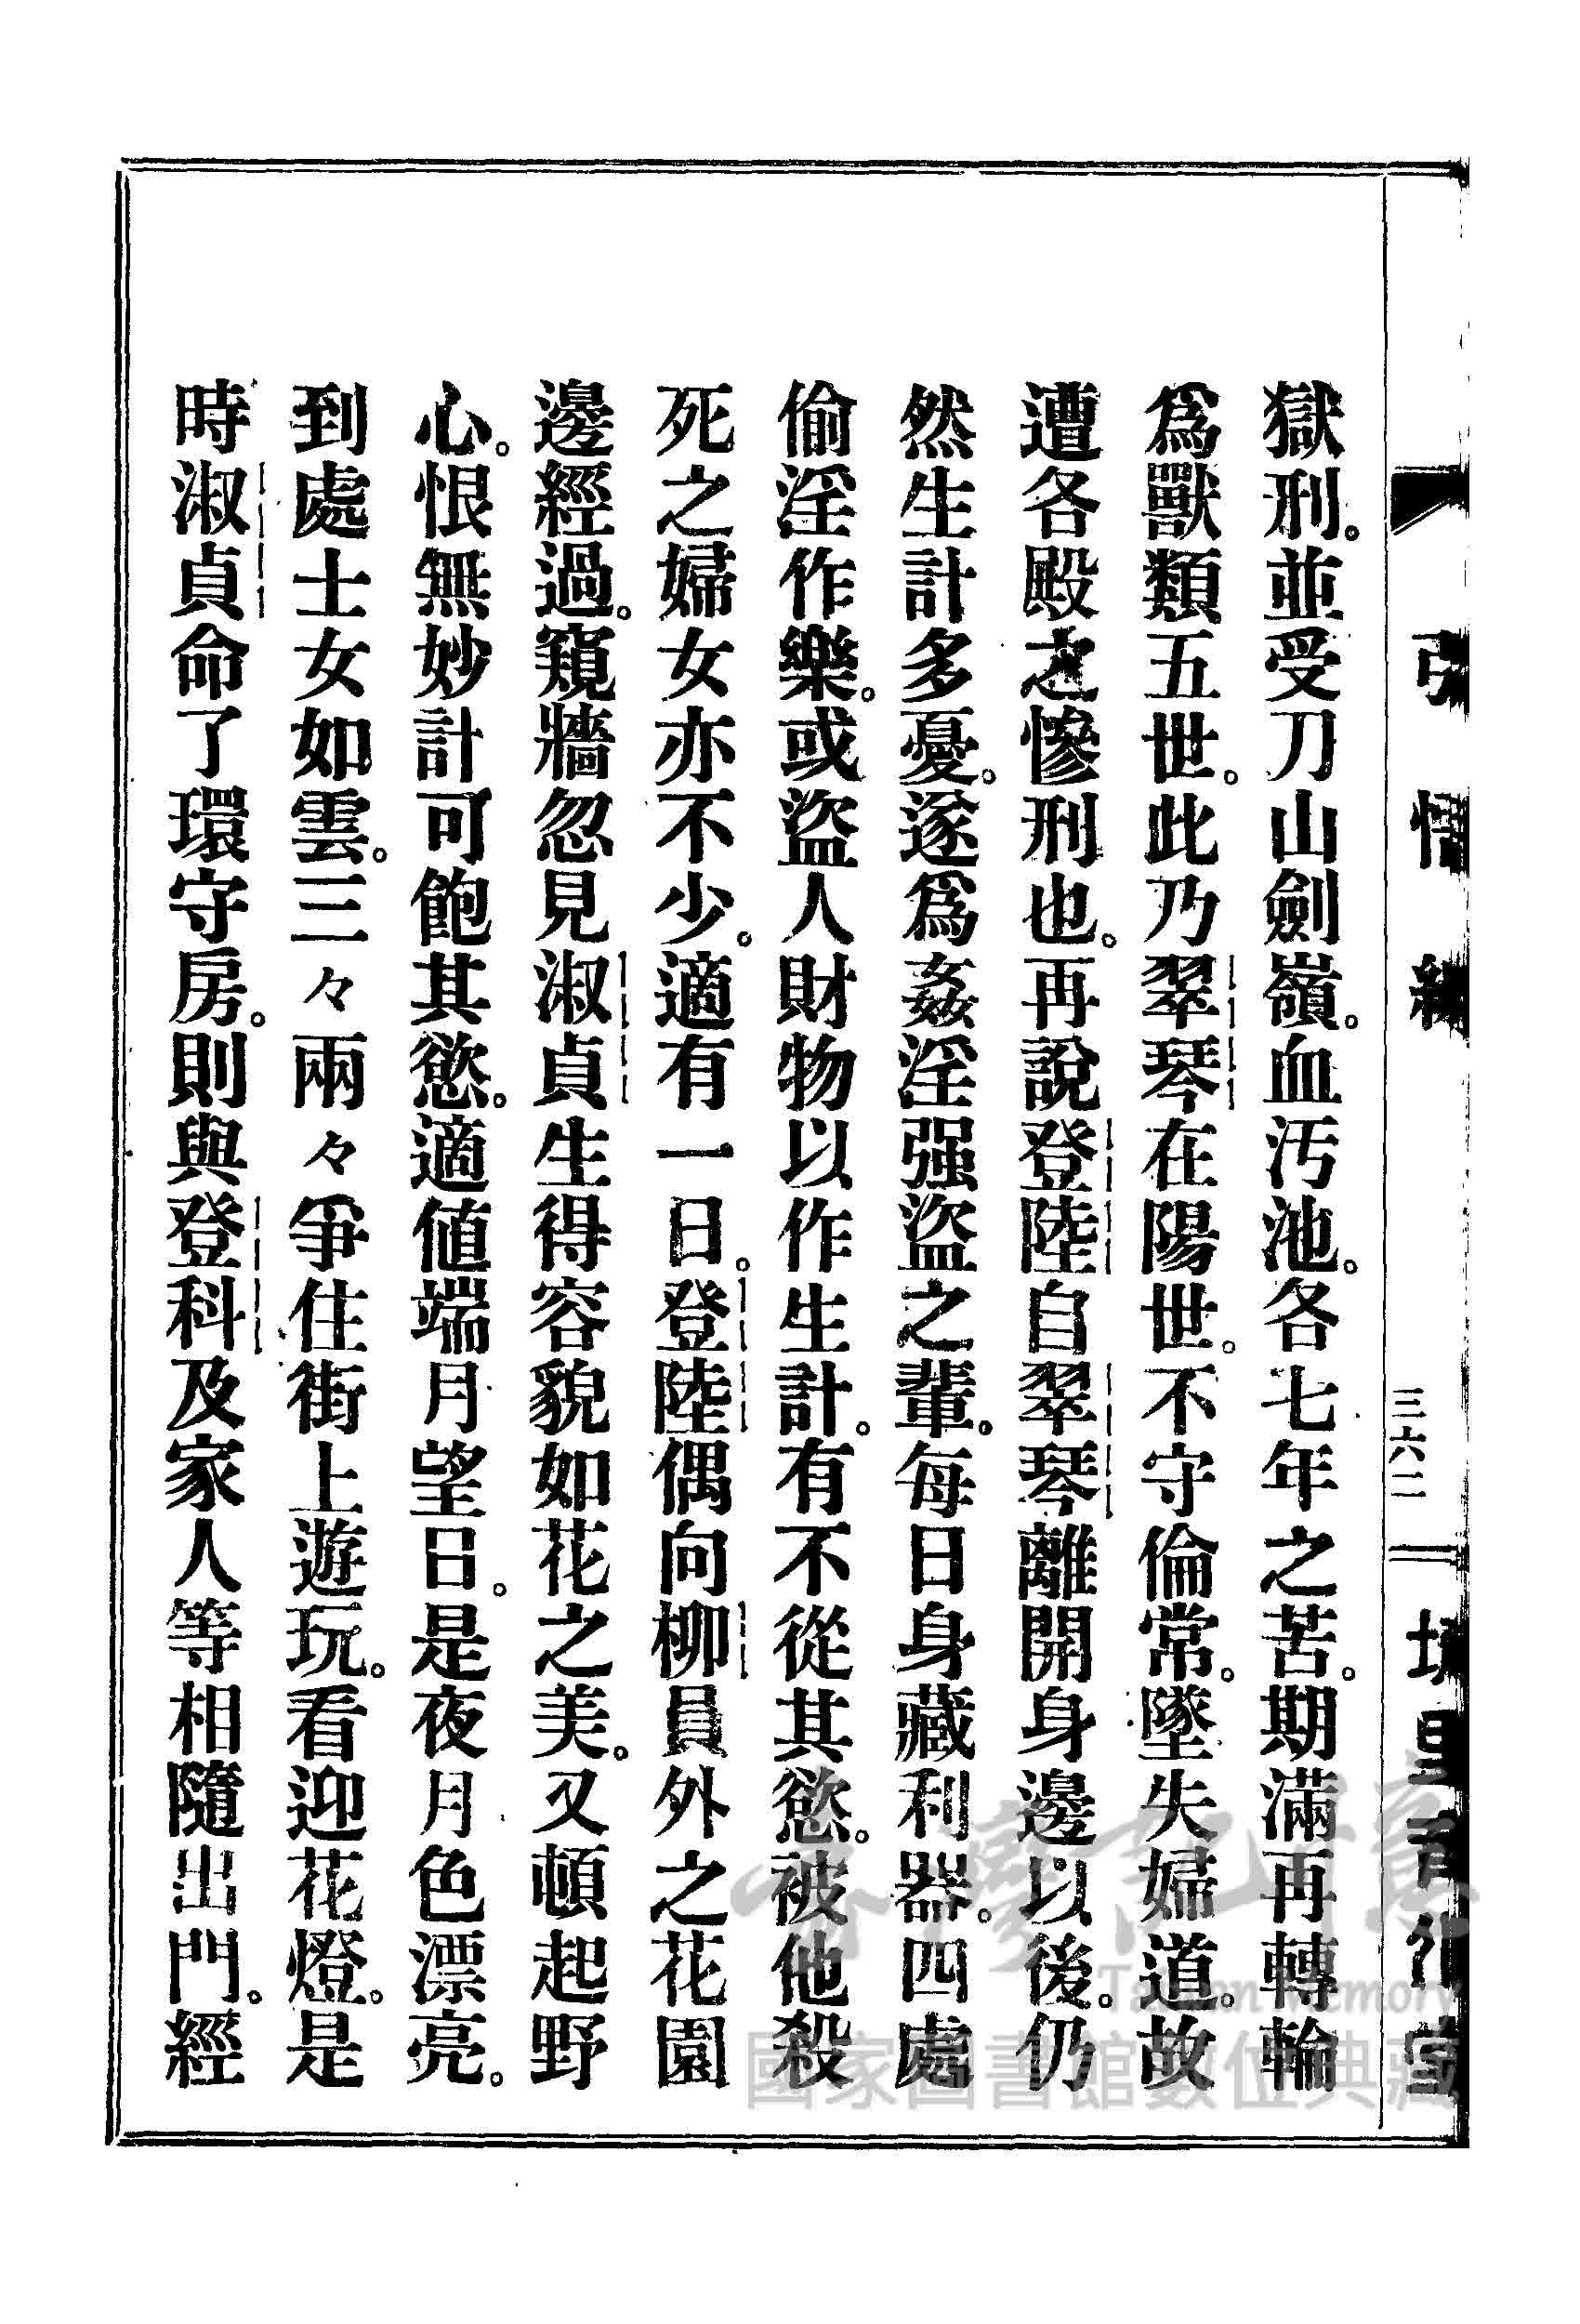 獄刑。並受刀山劍嶺。血汚池。各七年之苦。期滿再轉輪
爲獸類五世。此乃翠琴在陽世。不守倫常。墜失婦道。故
遭各殿之慘刑也。再說登陸自翠琴離開身邊以後。仍
然生計多憂。遂爲姦淫强盜之輩。每日身藏利器。四處
偷淫作樂。或盜人財物以作生計。有不從其慾。被他殺
死之婦女亦不少。適有一日。登陸偶向柳員外之花園
邊經過。窺牆忽見淑貞生得容貌如花之美。又頓起野
心。恨無妙計可飽其慾。適値端月望日。是夜月色漂亮。
到處士女如雲。三々兩々爭住街上遊玩。看迎花燈。是
時淑貞命了環守房。則與登科及家人等相隨出門。經
三六二
國家圖書館數位典藏
Taiwan Memory